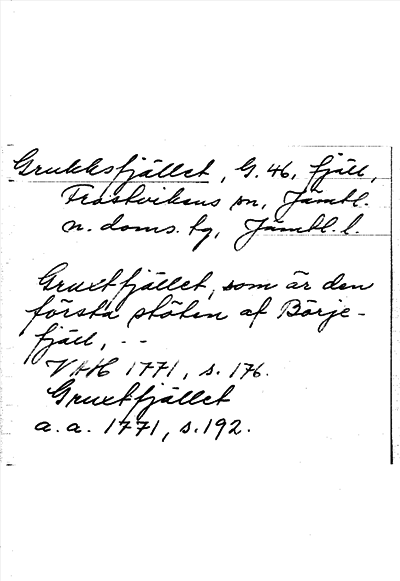 Grukksfjället, G. 46, fjäll,
Frostvikens sn, Jämtl.
n. doms. tg, Jämtl. l.
Gruxtfjället, som är den
första stöten af Börje-
fjäll, --
VAH 1771, s. 176.
Gruxtfjället
a. a. 1771, s. 192.